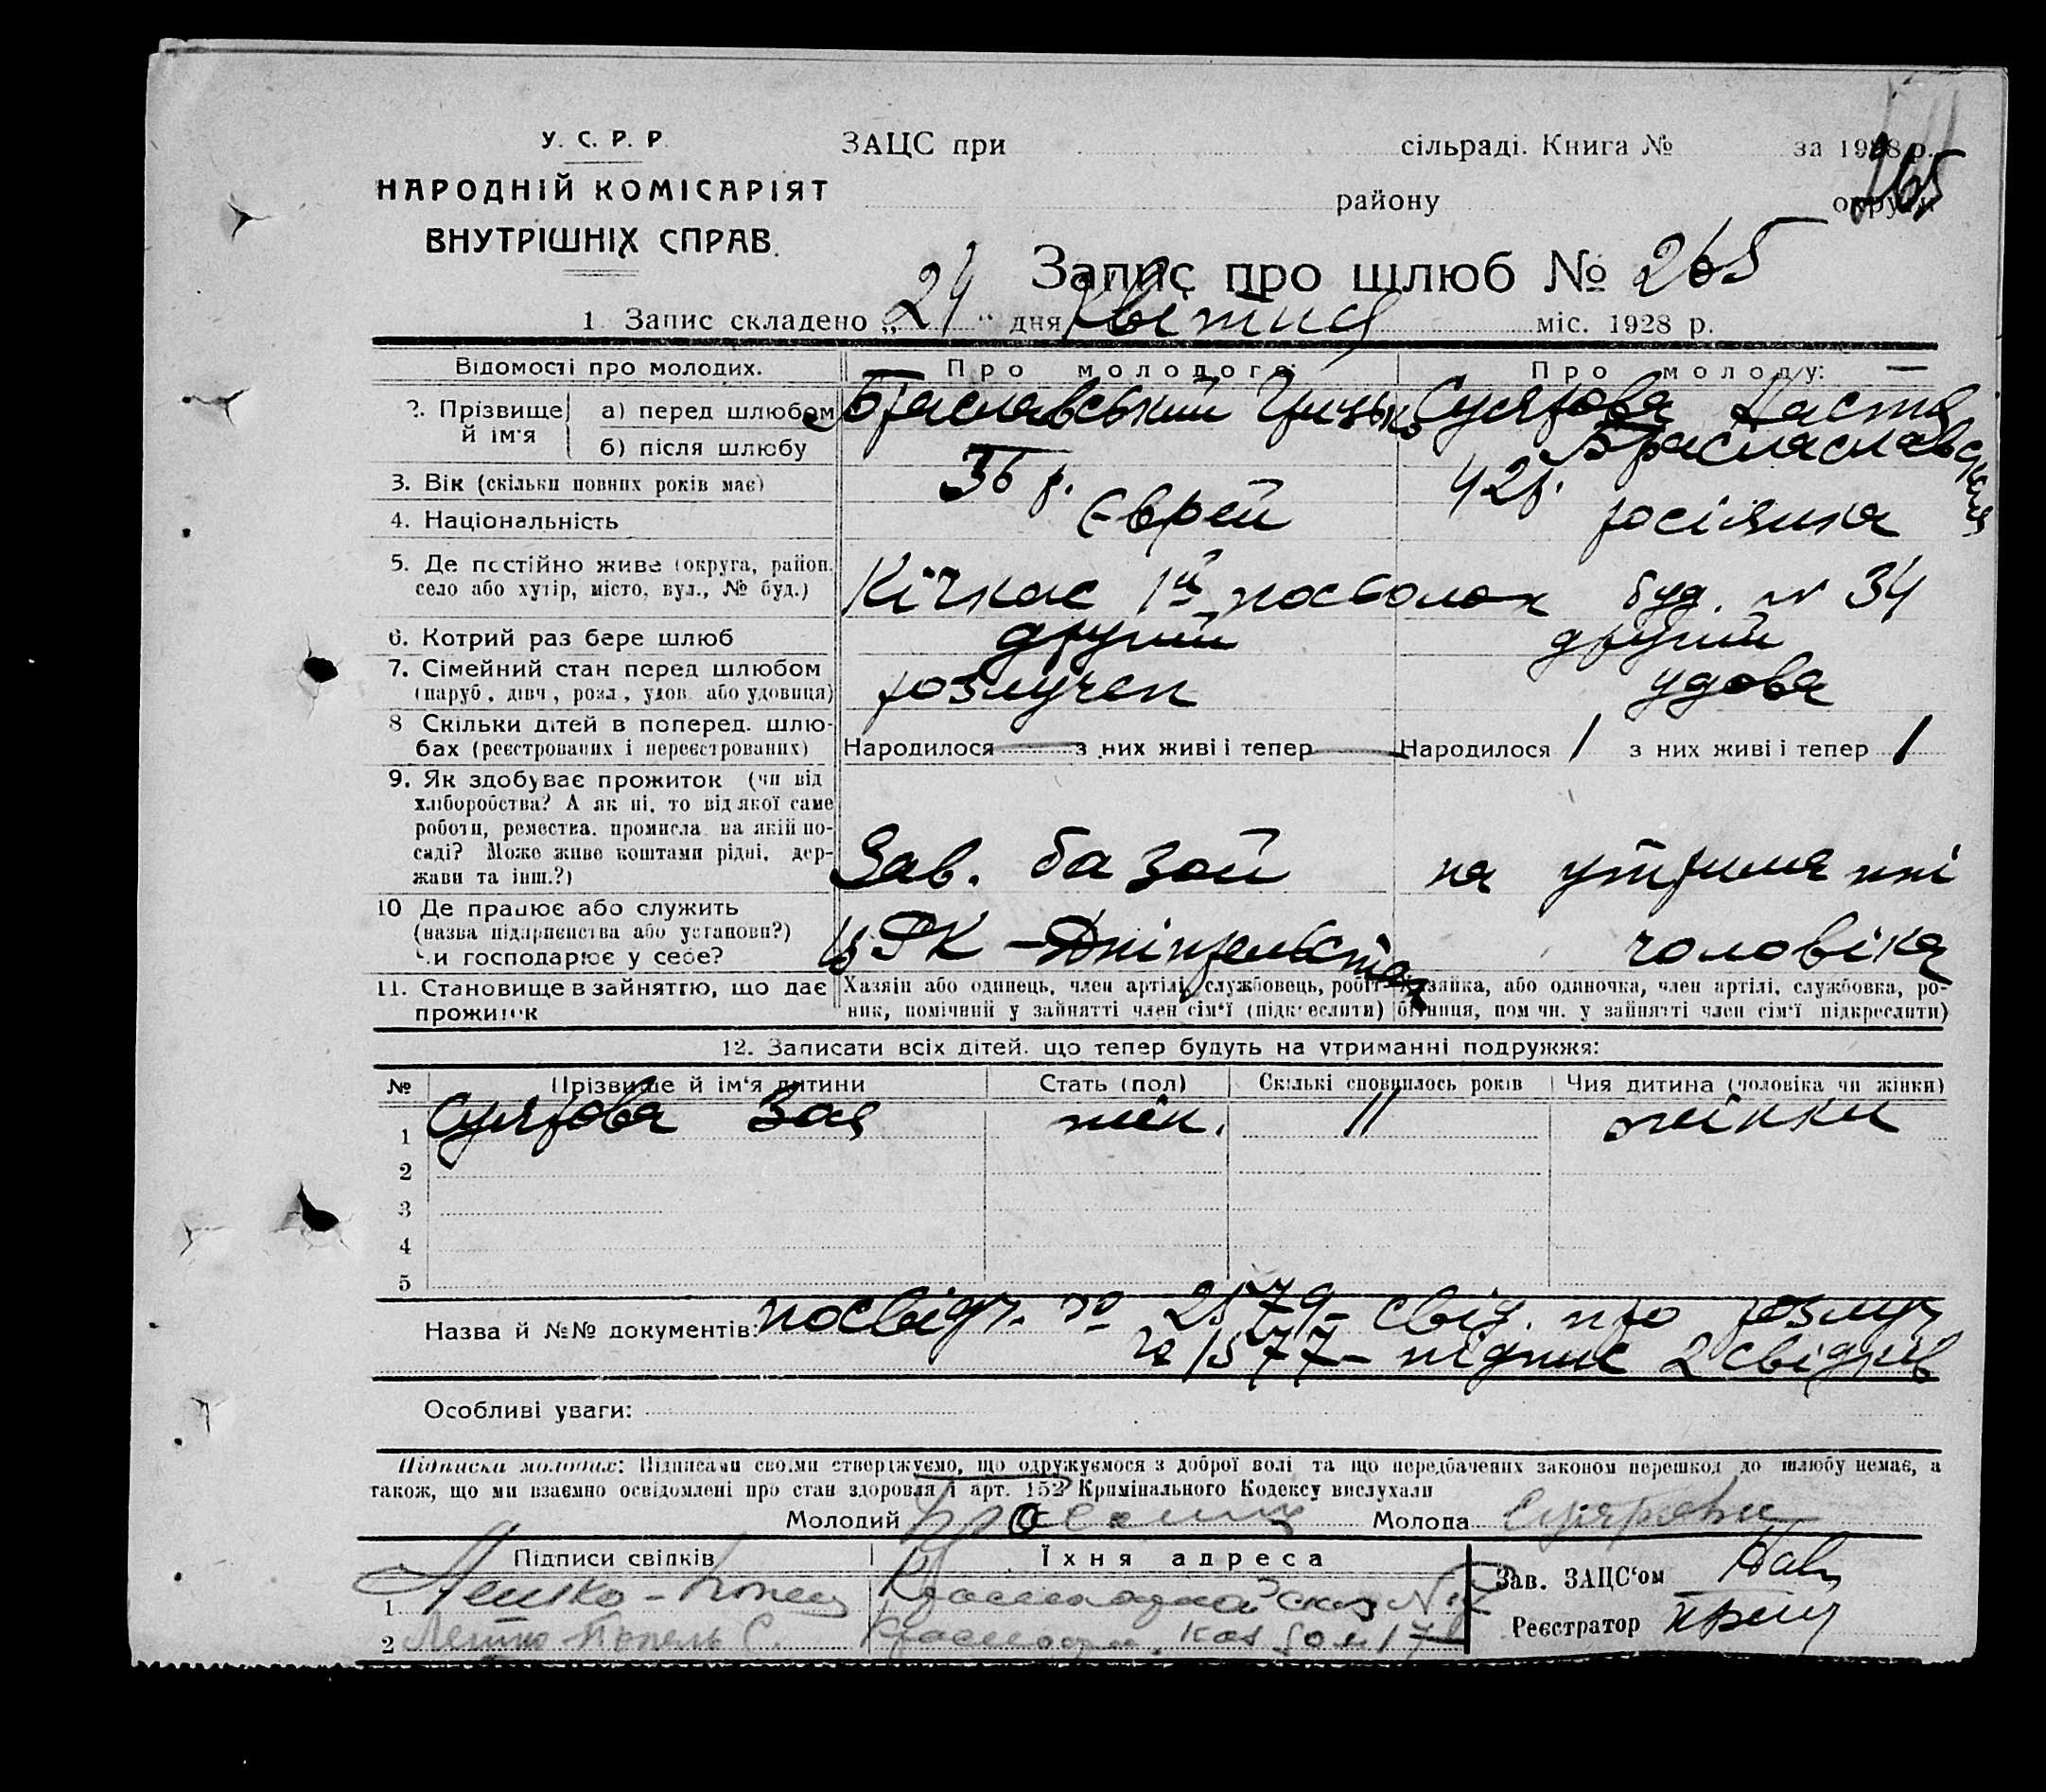 У. С. Р. Р.
НАРОДНІЙ КОМІСАРІЯТ
ВНУТРІШНІХ СПРАВ.
ЗАЦС при сільраді. Книга № за 1928 р.
району округи
265
Запис про шлюб № 265
1. Запис складено „24“ дня Квітня міс. 1928 р.
Відомості про молодих. Про молодого: Про молоду:
2. Прізвище й ім'я
а) перед шлюбом Браславський Грицько Суярова Настя
б) після шлюбу
3. Вік (скільки повних років має) 36 р. 42 р.
4. Національність Єврей росіянка
5. Де постійно живе (округа, район, село або хутір, місто, вул., № буд.) Кічкас 1й посьолок буд. № 34
6. Котрий раз бере шлюб другий другий
7. Сімейний стан перед шлюбом (паруб., дівч., розл., удов. або удовиця) розлучен удова
8 Скільки дітей в поперед. шлюбах (реєстрованих і нереєстрованих) Народилося — з них живі і тепер — Народилося 1 з них живі і тепер 1
9. Як здобуває прожиток (чи від хліборобства? А як ні, то від якої саме роботи, ремества, промисла на якій посаді? Може живе коштами рідні, держави та інш.?) Зав. базой на утриманні
10 Де працює або служить (назва підприємства або установи?) Чи господарює у себе? ЦРК - чоловіка
11. Становище в зайняттю, що дає прожиток Хазяїн або одинець, член артілі, службовець, робітник, помічний у зайнятті член сім'ї (підкреслити) Хазяйка, або одиночка, член артілі, службовка, робітниця, пом чн. у зайнятті член сім'ї підкреслити)
12. Записати всіх дітей, що тепер будуть на утриманні подружжя:
№ Прізвище й ім'я дитини Стать (пол) Скількі сповнилось років Чия дитина (чоловіка чи жінки)
1 Суярова Зоя жін. 11 жінки
2
3
4
5
Назва й №№ документів: посвідч. № 2579 - свід. про розлуч
№ 1577 - підпис 2 свідків
Особливі уваги:
Підписка молодих: Підписами своїми стверджуємо, що одружуємося з доброї волі та що передбачених законом перешкод до шлюбу немає, а
також, що ми взаємно освідомлені про стан здоровля і арт. 152 Кримінального Кодексу вислухали
Молодий Молода Суярова
Підписи свідків Їхня адреса
Зав. ЗАЦС'ом
1
Реєстратор
2